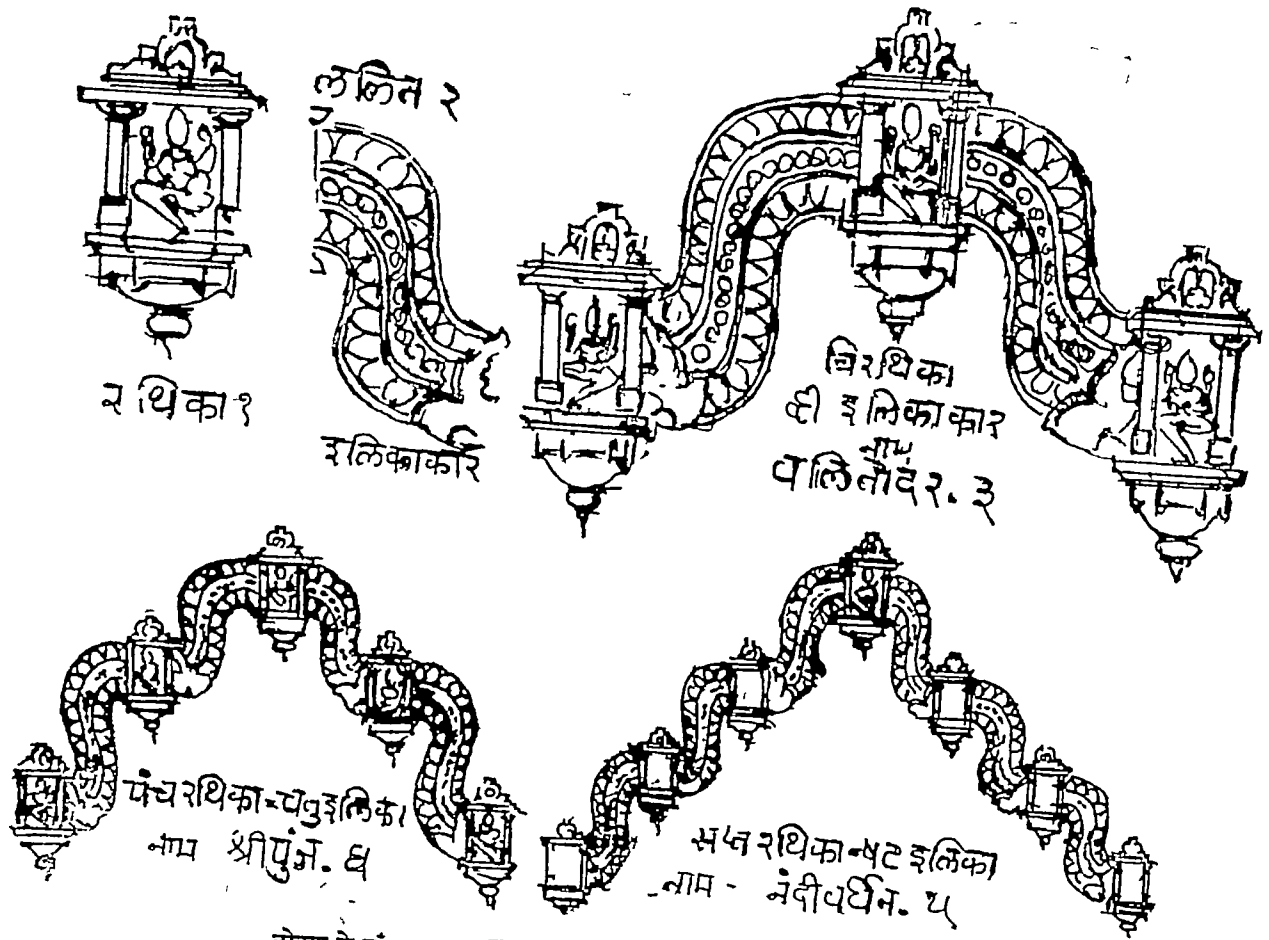 ललित २
रथिका १
इलिकाकार
त्रिरथिका
द्वी इलिकाकार
नाम
वलितोदर. ३
पंचरथिका-चतुइलिका
नाम श्रीपुंज. ४
सप्त रथिका-षट इलिका
नाम - नंदीवर्धन. ५